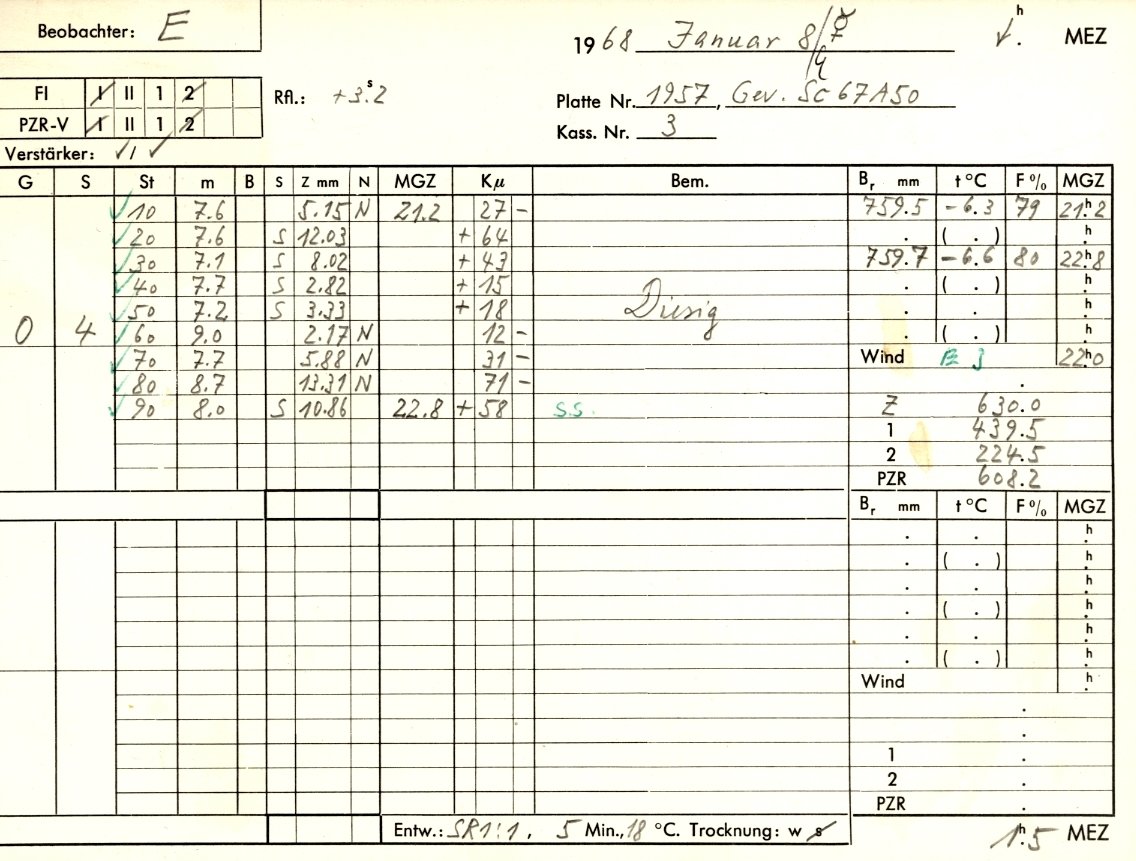 Beobachter: E
1968 Januar 8/9 h. MEZ
FI I II 1 2
Rfl.: +3.ˢ2
Platte Nr. 1957, Gev. Sc 67A50
PZR-V I II 1 2
Kass. Nr. 3
Verstärker: ✓/✓
G S St m B S Z mm N MGZ Kμ Bem. Br mm t °C F % MGZ
✓10 7.6 5.15 N 21.2 27 - 759.5 -6.3 79 21ʰ.2
✓20 7.6 S 12.03 + 64 . ( . ) h.
✓30 7.1 S 8.02 + 43 759.7 -6.6 80 22ʰ.8
✓40 7.7 S 2.82 + 15 . ( . ) h.
✓50 7.2 S 3.33 + 18 Diesig . . h.
0 4 ✓60 9.0 2.17 N 12 - . ( . ) h.
✓70 7.7 5.88 N 31 - Wind E 3 22ʰ.0
✓80 8.7 13.31 N 71 - .
✓90 8.0 S 10.86 22.8 + 58 s.s. Z 630.0
1 439.5
2 224.5
PZR 608.2
Br mm t °C F % MGZ
. . h.
. ( . ) h.
. . h.
. ( . ) h.
. . h.
. ( . ) h.
Wind h.
.
.
1 .
2 .
PZR .
Entw.: SR1:1, 5 Min., 18 °C. Trocknung: w s
1ʰ.5 MEZ